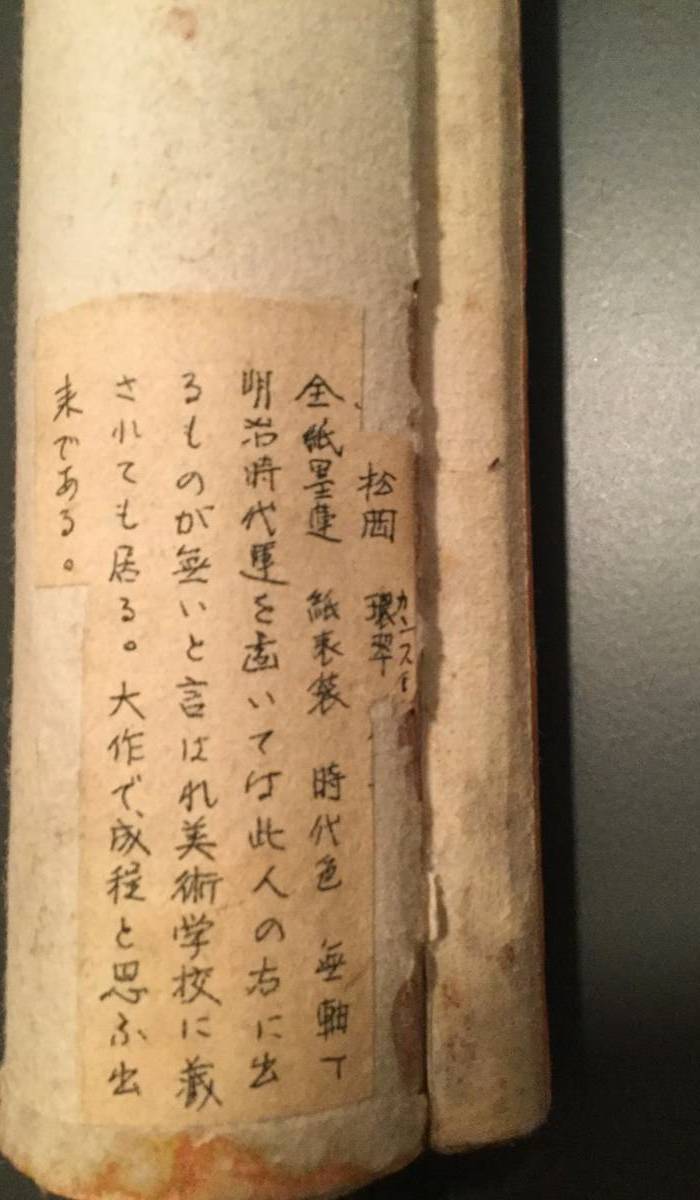 松岡 環翠
カンスイ
全紙墨蓮 紙表装 時代色 無軸
明治時代蓮を画いては此人の右に出
るものが無いと言はれ美術学校に蔵
されても居る。大作で、成程と思ふ出
来である。